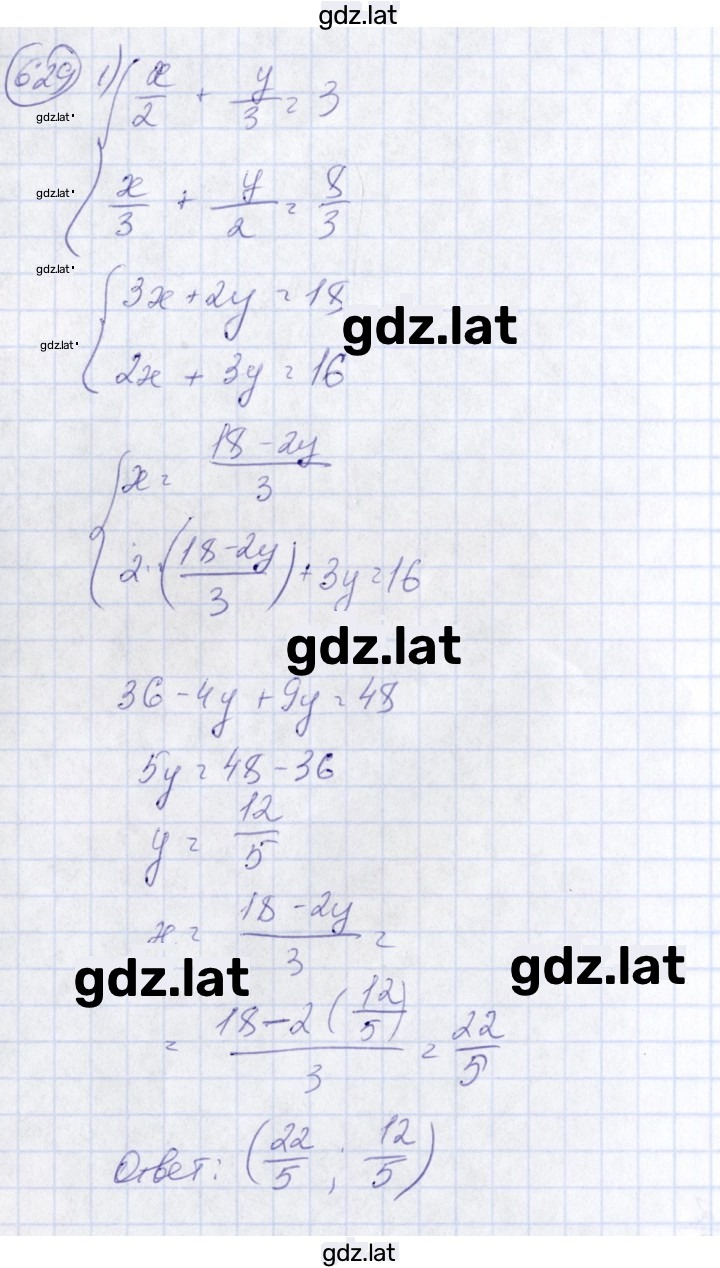 gdz.lat
629 1) { x/2 + y/3 = 3
gdz.lat
x/3 + y/2 = 8/3
gdz.lat
gdz.lat
{ 3x + 2y = 18
gdz.lat
gdz.lat
2x + 3y = 16
{ x = (18 - 2y)/3
2 · ((18 - 2y)/3) + 3y = 16
gdz.lat
36 - 4y + 9y = 48
5y = 48 - 36
y = 12/5
x = (18 - 2y)/3 =
gdz.lat
gdz.lat
= (18 - 2(12/5))/3 = 22/5
Ответ: (22/5 ; 12/5)
gdz.lat